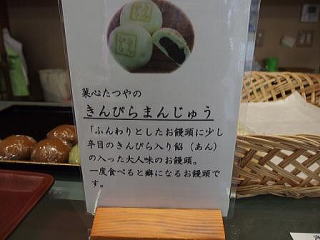 菓心たつやの
きんぴらまんじゅう
「ふんわりとしたお饅頭に少し
辛目のきんぴら入り餡（あん）
の入った大人味のお饅頭。
一度食べると癖になるお饅頭で
す。